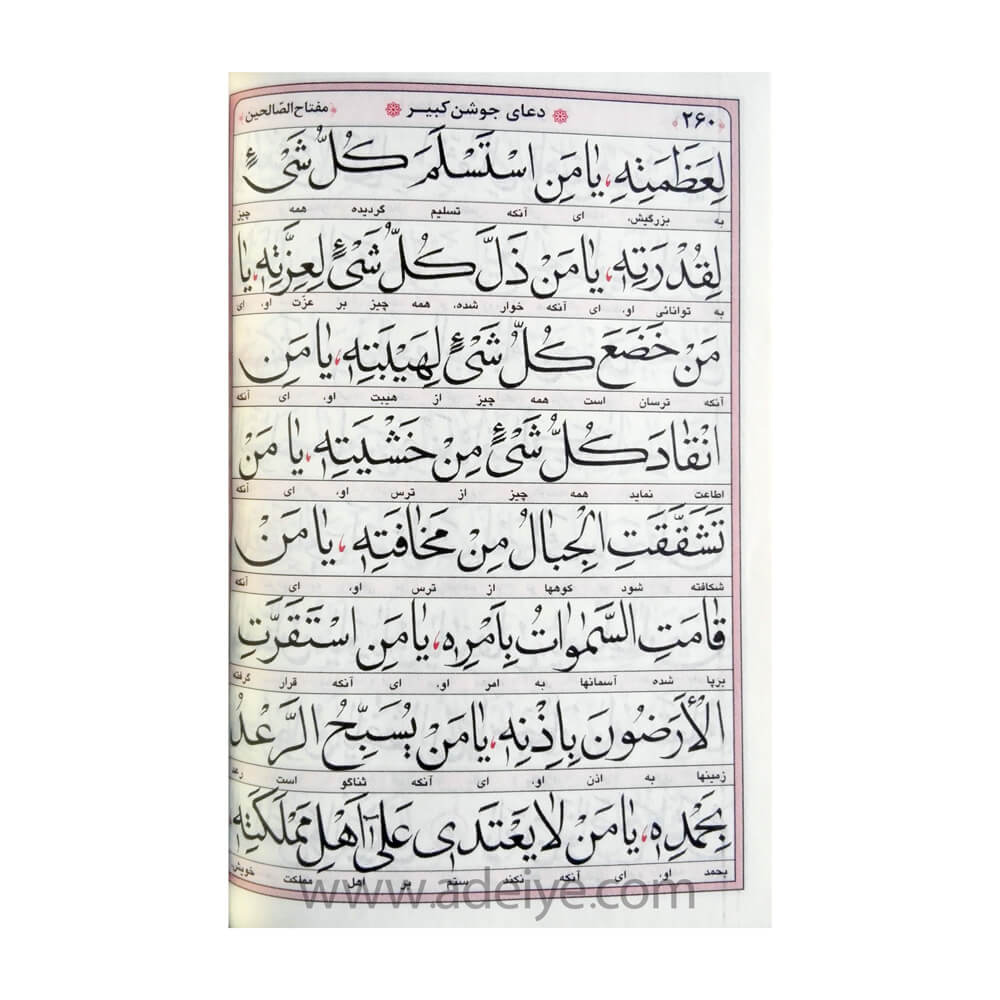 ۲۶۰ دعای جوشن کبیر مفتاح الصّالحین
لِعَظَمَتِهِ، یا مَنِ اسْتَسْلَمَ کُلُّ شَیْءٍ
به بزرگیش، ای آنکه تسلیم گردیده همه چیز
لِقُدْرَتِهِ، یا مَنْ ذَلَّ کُلُّ شَیْءٍ لِعِزَّتِهِ، یا
به توانائی او، ای آنکه خوار شده، همه چیز بر عزّت او، ای
مَنْ خَضَعَ کُلُّ شَیْءٍ لِهَیْبَتِهِ، یا مَنِ
آنکه ترسان است همه چیز از هیبت او، ای آنکه
انْقادَ کُلُّ شَیْءٍ مِنْ خَشْیَتِهِ، یا مَنْ
اطاعت نماید همه چیز از ترس او، ای آنکه
تَشَقَّقَتِ الْجِبالُ مِنْ مَخافَتِهِ، یا مَنْ
شکافته شود کوهها از ترس او، ای آنکه
قامَتِ السَّمٰواتُ بِاَمْرِهِ، یا مَنِ اسْتَقَرَّتِ
برپا شده آسمانها به امر او، ای آنکه قرار گرفته
الْأَرَضُونَ بِاِذْنِهِ، یا مَنْ یُسَبِّحُ الرَّعْدُ
زمینها به اذن او، ای آنکه ثناگو است رعد
بِحَمْدِهِ، یا مَنْ لا یَعْتَدی عَلیٰٓ اَهْلِ مَمْلَکَتِهِ،
بحمد او، ای آنکه نکند ستم بر اهل مملکت خویش،
www.adeiye.com